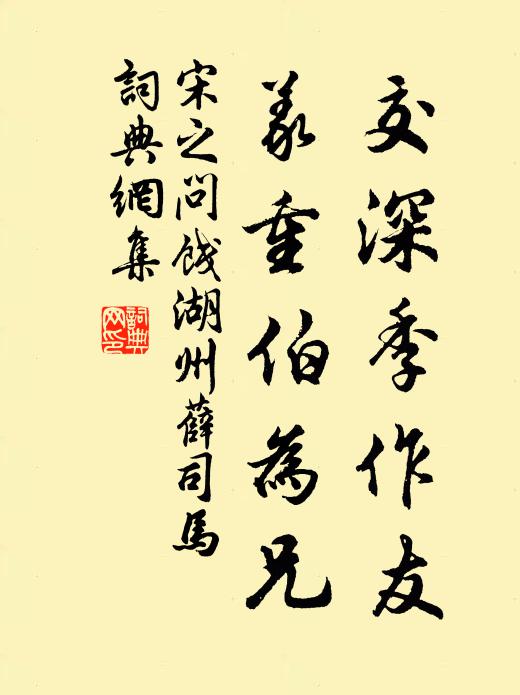 交深季作友
義重伯為兄
宋之問餞湖州薛司馬
詞典網集
詞典网印